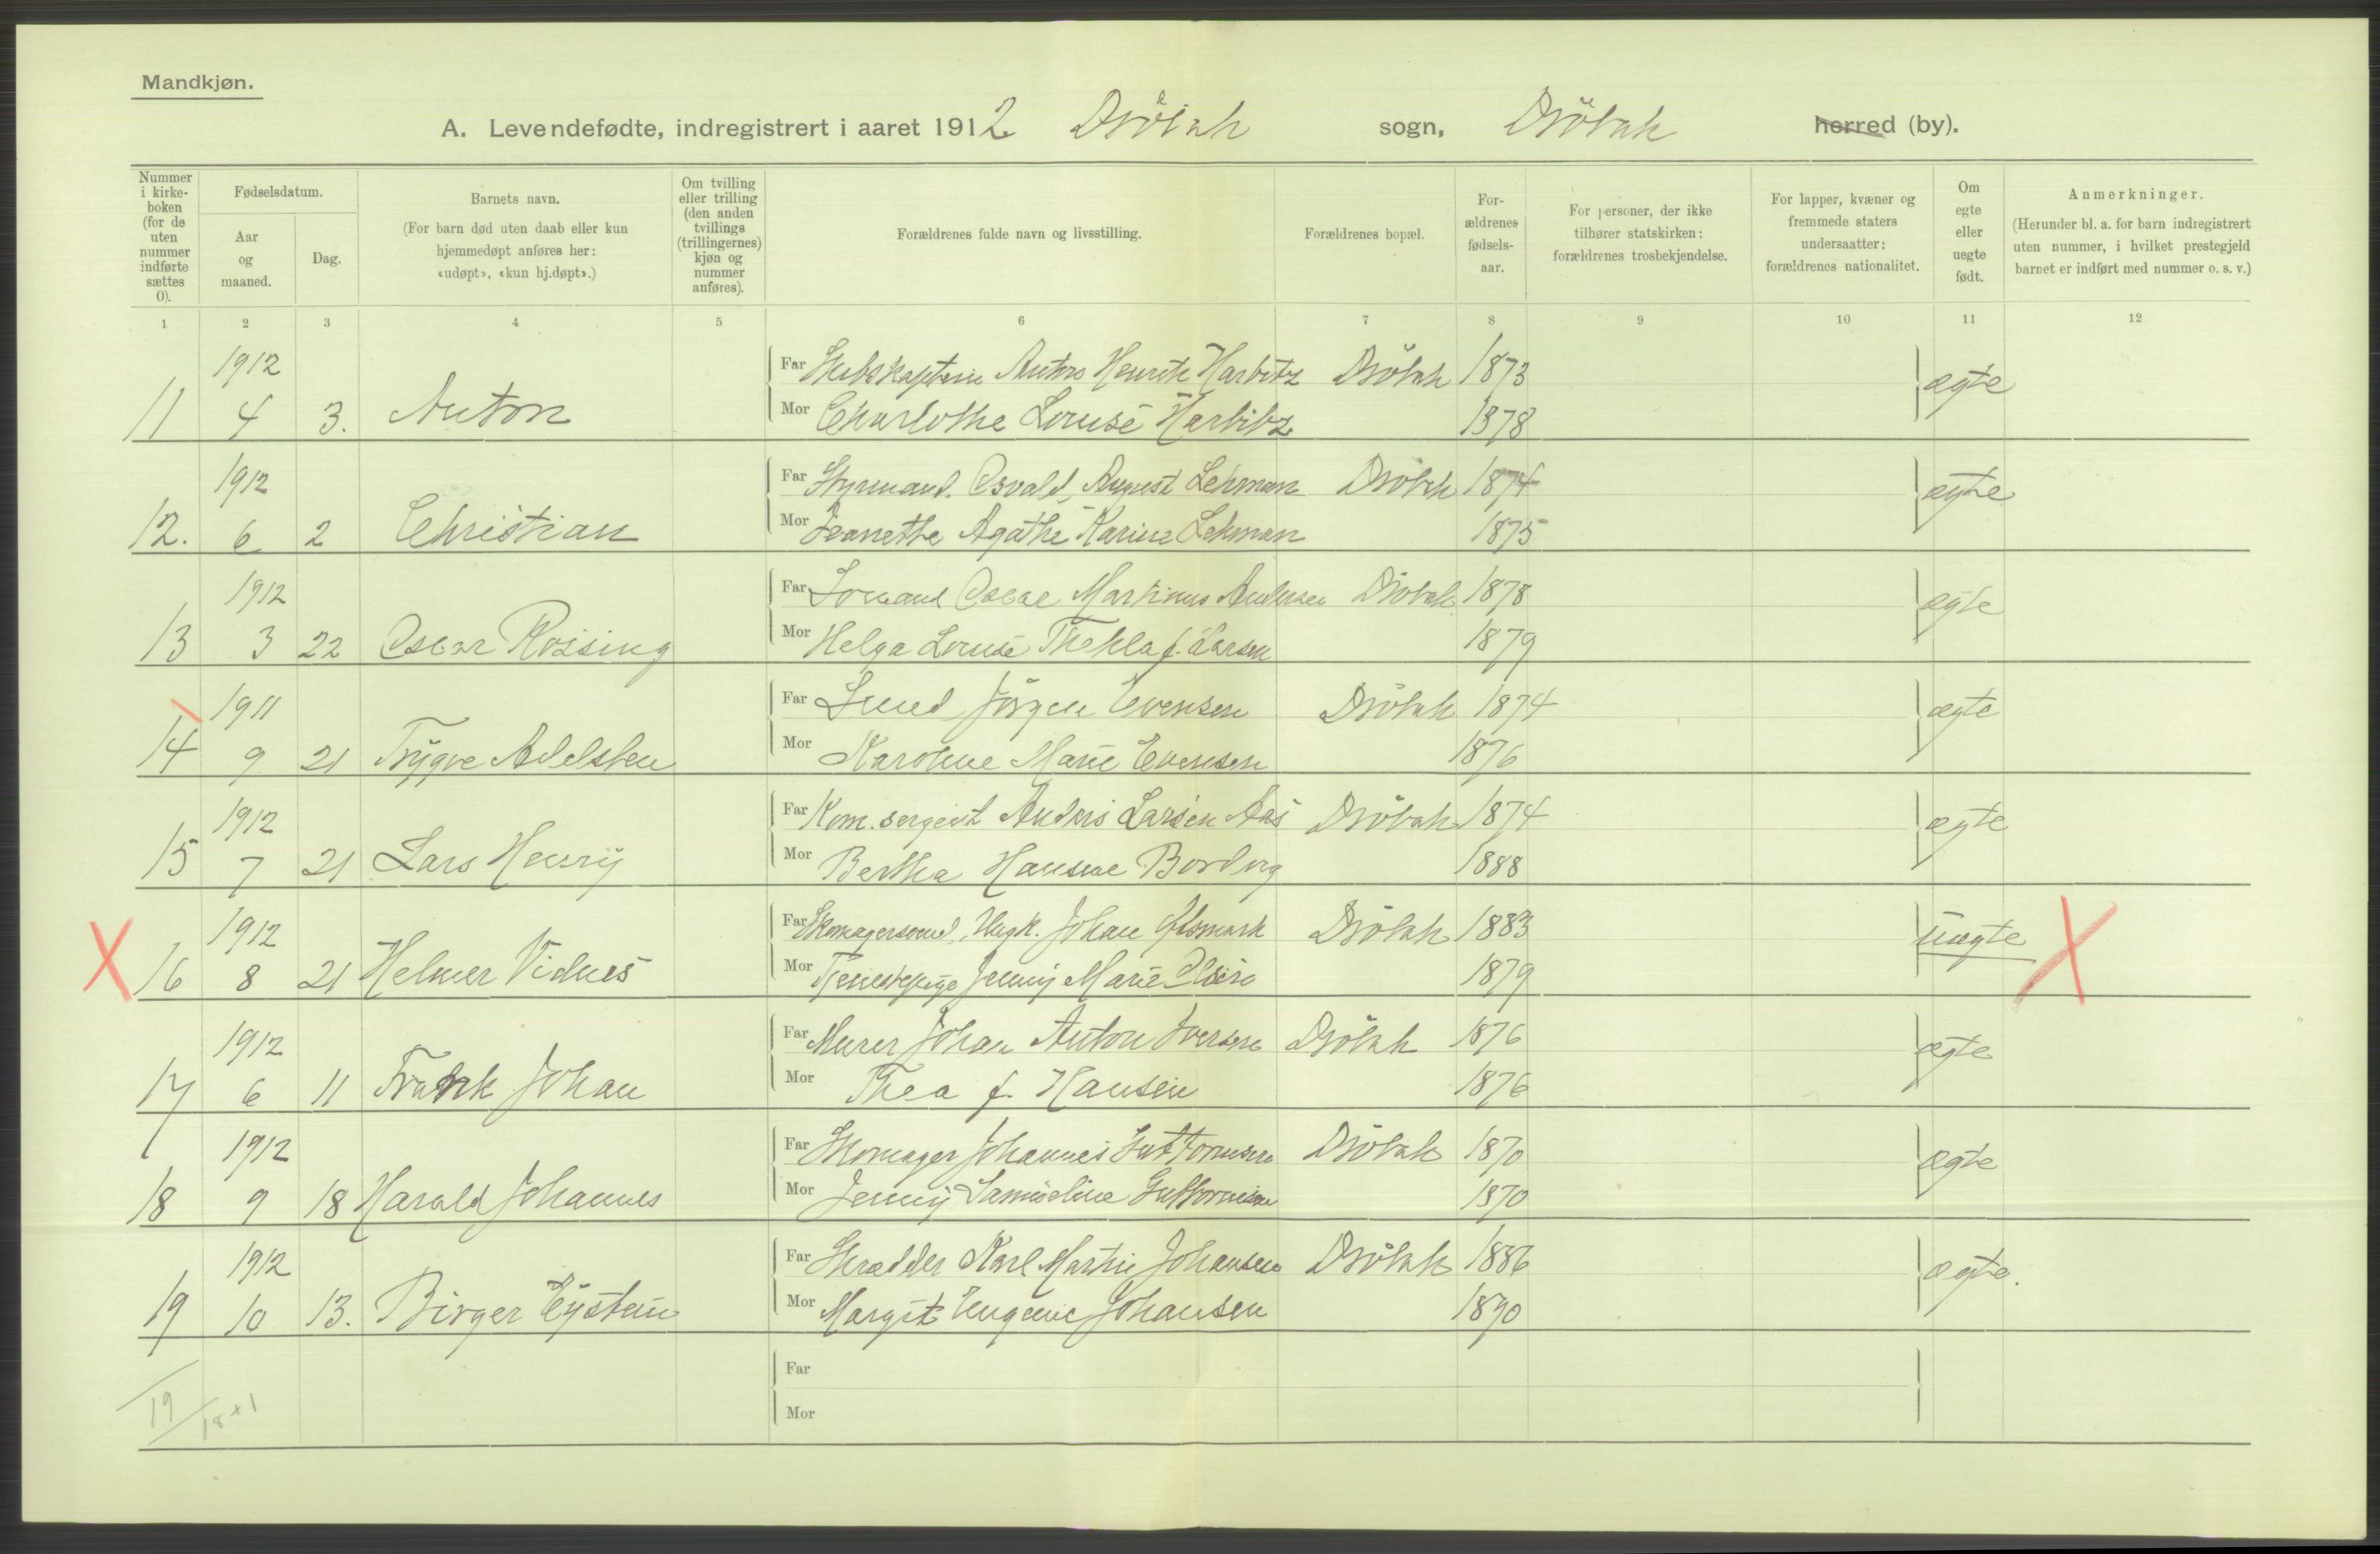 Mandkjøn.
A. Levendefødte, indregistrert i aaret 1912 Drøbak sogn, Drøbak herred (by).
Nummer i kirke-boken (for de uten nummer indførte sættes 0).
Fødselsdatum.
Aar og maaned.
Dag.
Barnets navn.
(For barn død uten daab eller kun hjemmedøpt anføres her: «udøpt», «kun hj.døpt».)
Om tvilling eller trilling (den anden tvillings (trillingernes) kjøn og nummer anføres).
Forældrenes fulde navn og livsstilling.
Forældrenes bopæl.
For-ældrenes fødsels-aar.
For personer, der ikke tilhører statskirken: forældrenes trosbekjendelse.
For lapper, kvæner og fremmede staters undersaatter: forældrenes nationalitet.
Om egte eller uegte født.
Anmerkninger.
(Herunder bl. a. for barn indregistrert uten nummer, i hvilket prestegjeld barnet er indført med nummer o. s. v.)
1 2 3 4 5 6 7 8 9 10 11 12
1912 Far Skibskaptein Anton Henrik Harbitz Drøbak 1873 ægte
11 4 3. Anton Mor Charlothe Louise Harbitz 1878
1912 Far Styrmand Osvald August Lehman Drøbak 1874 ægte
12. 6 2 Christian Mor Jeanette Agathe Karine Lehman 1875
1912 Far Sömand Oscar Martinus Andersen Drøbak 1878 ægte
13 3 22 Oscar Roising Mor Helga Louise Thekla f. Larsen 1879
1911 Far Smed Jörgen Evensen Drøbak 1874 ægte
14 9 21 Trygve Adelsten Mor Karoline Marie Evensen 1876
1912 Far Kom. sergent Anders Larsen Aas Drøbak 1874 ægte
15 7 21 Lars Henry Mor Bertha Hansine 1888
1912 Far Ungk. Johan Drøbak 1883 uægte
16 8 21 Helmer Vidnes Mor Tjenestepige Jenny Marie Olsen 1879
1912 Far Murer Johan Anton Iversen Drøbak 1876 ægte
17 6 11 Frank Johan Mor Thea f. Hansen 1876
1912 Far Skomager Johannes Guttormsen Drøbak 1870 ægte
18 9 18 Harald Johannes Mor Jenny Samueline Guttormsen 1870
1912 Far Skrædder Karl Martin Johansen Drøbak 1886 ægte.
19 10 13. Birger Eystein Mor Margit Eugenie Johansen 1890
Far
19/18+1 Mor